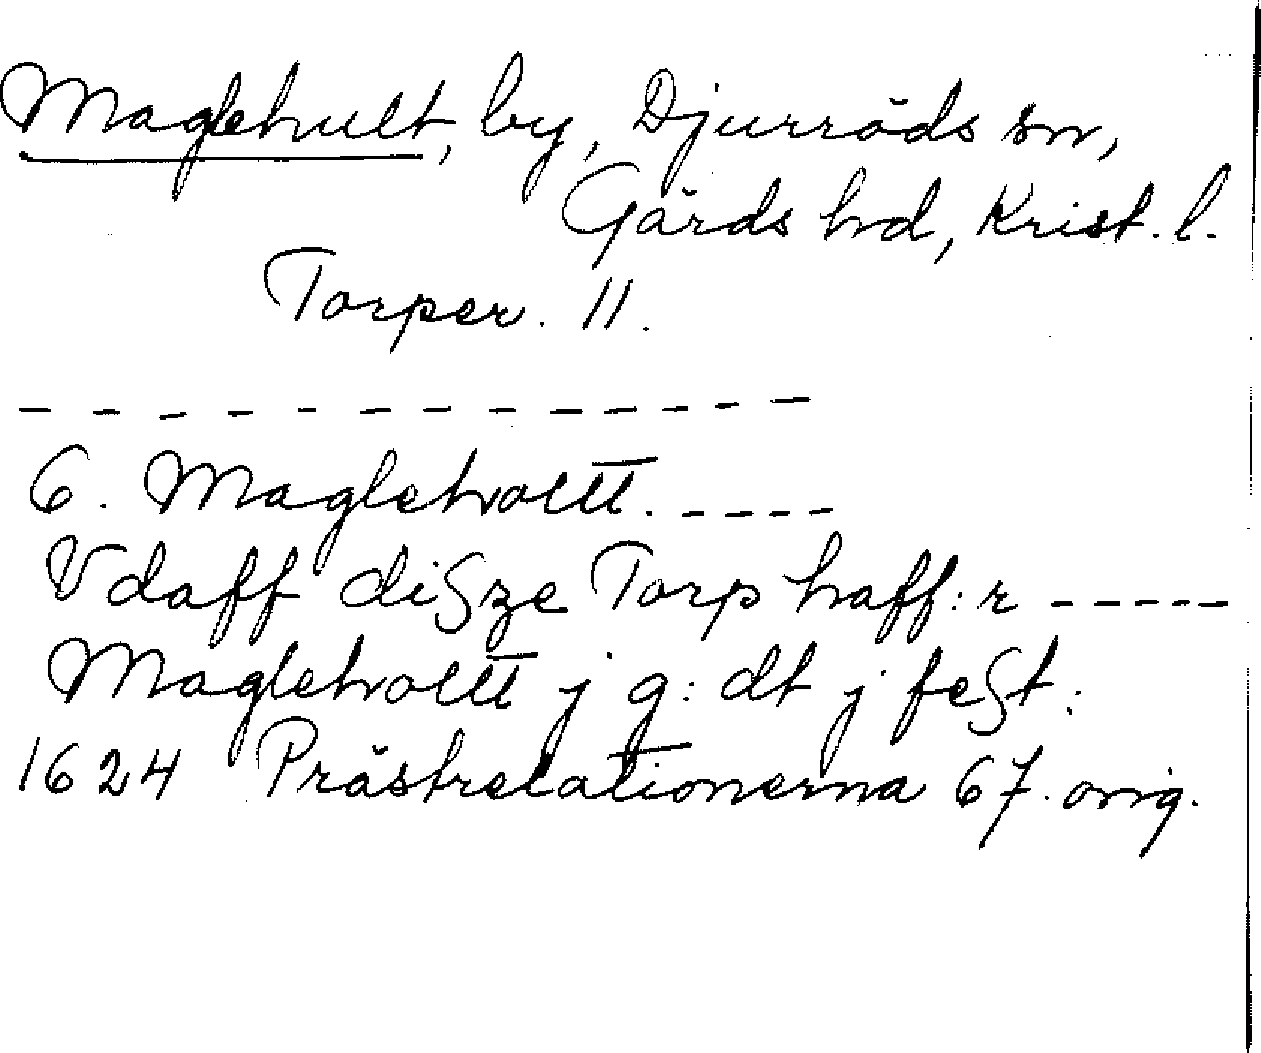 Maglehult, by, Djurröds sn,
Gärds hd, Krist. l.
Torper. 11.
- - - - - - - - - - - - -
6. Magleholtt. - - - - -
Vdaff diſze Torp haff:r - - - - -
Magletholtt j g: dt j feſt:
1624 Prästrelationerna 67. orig.